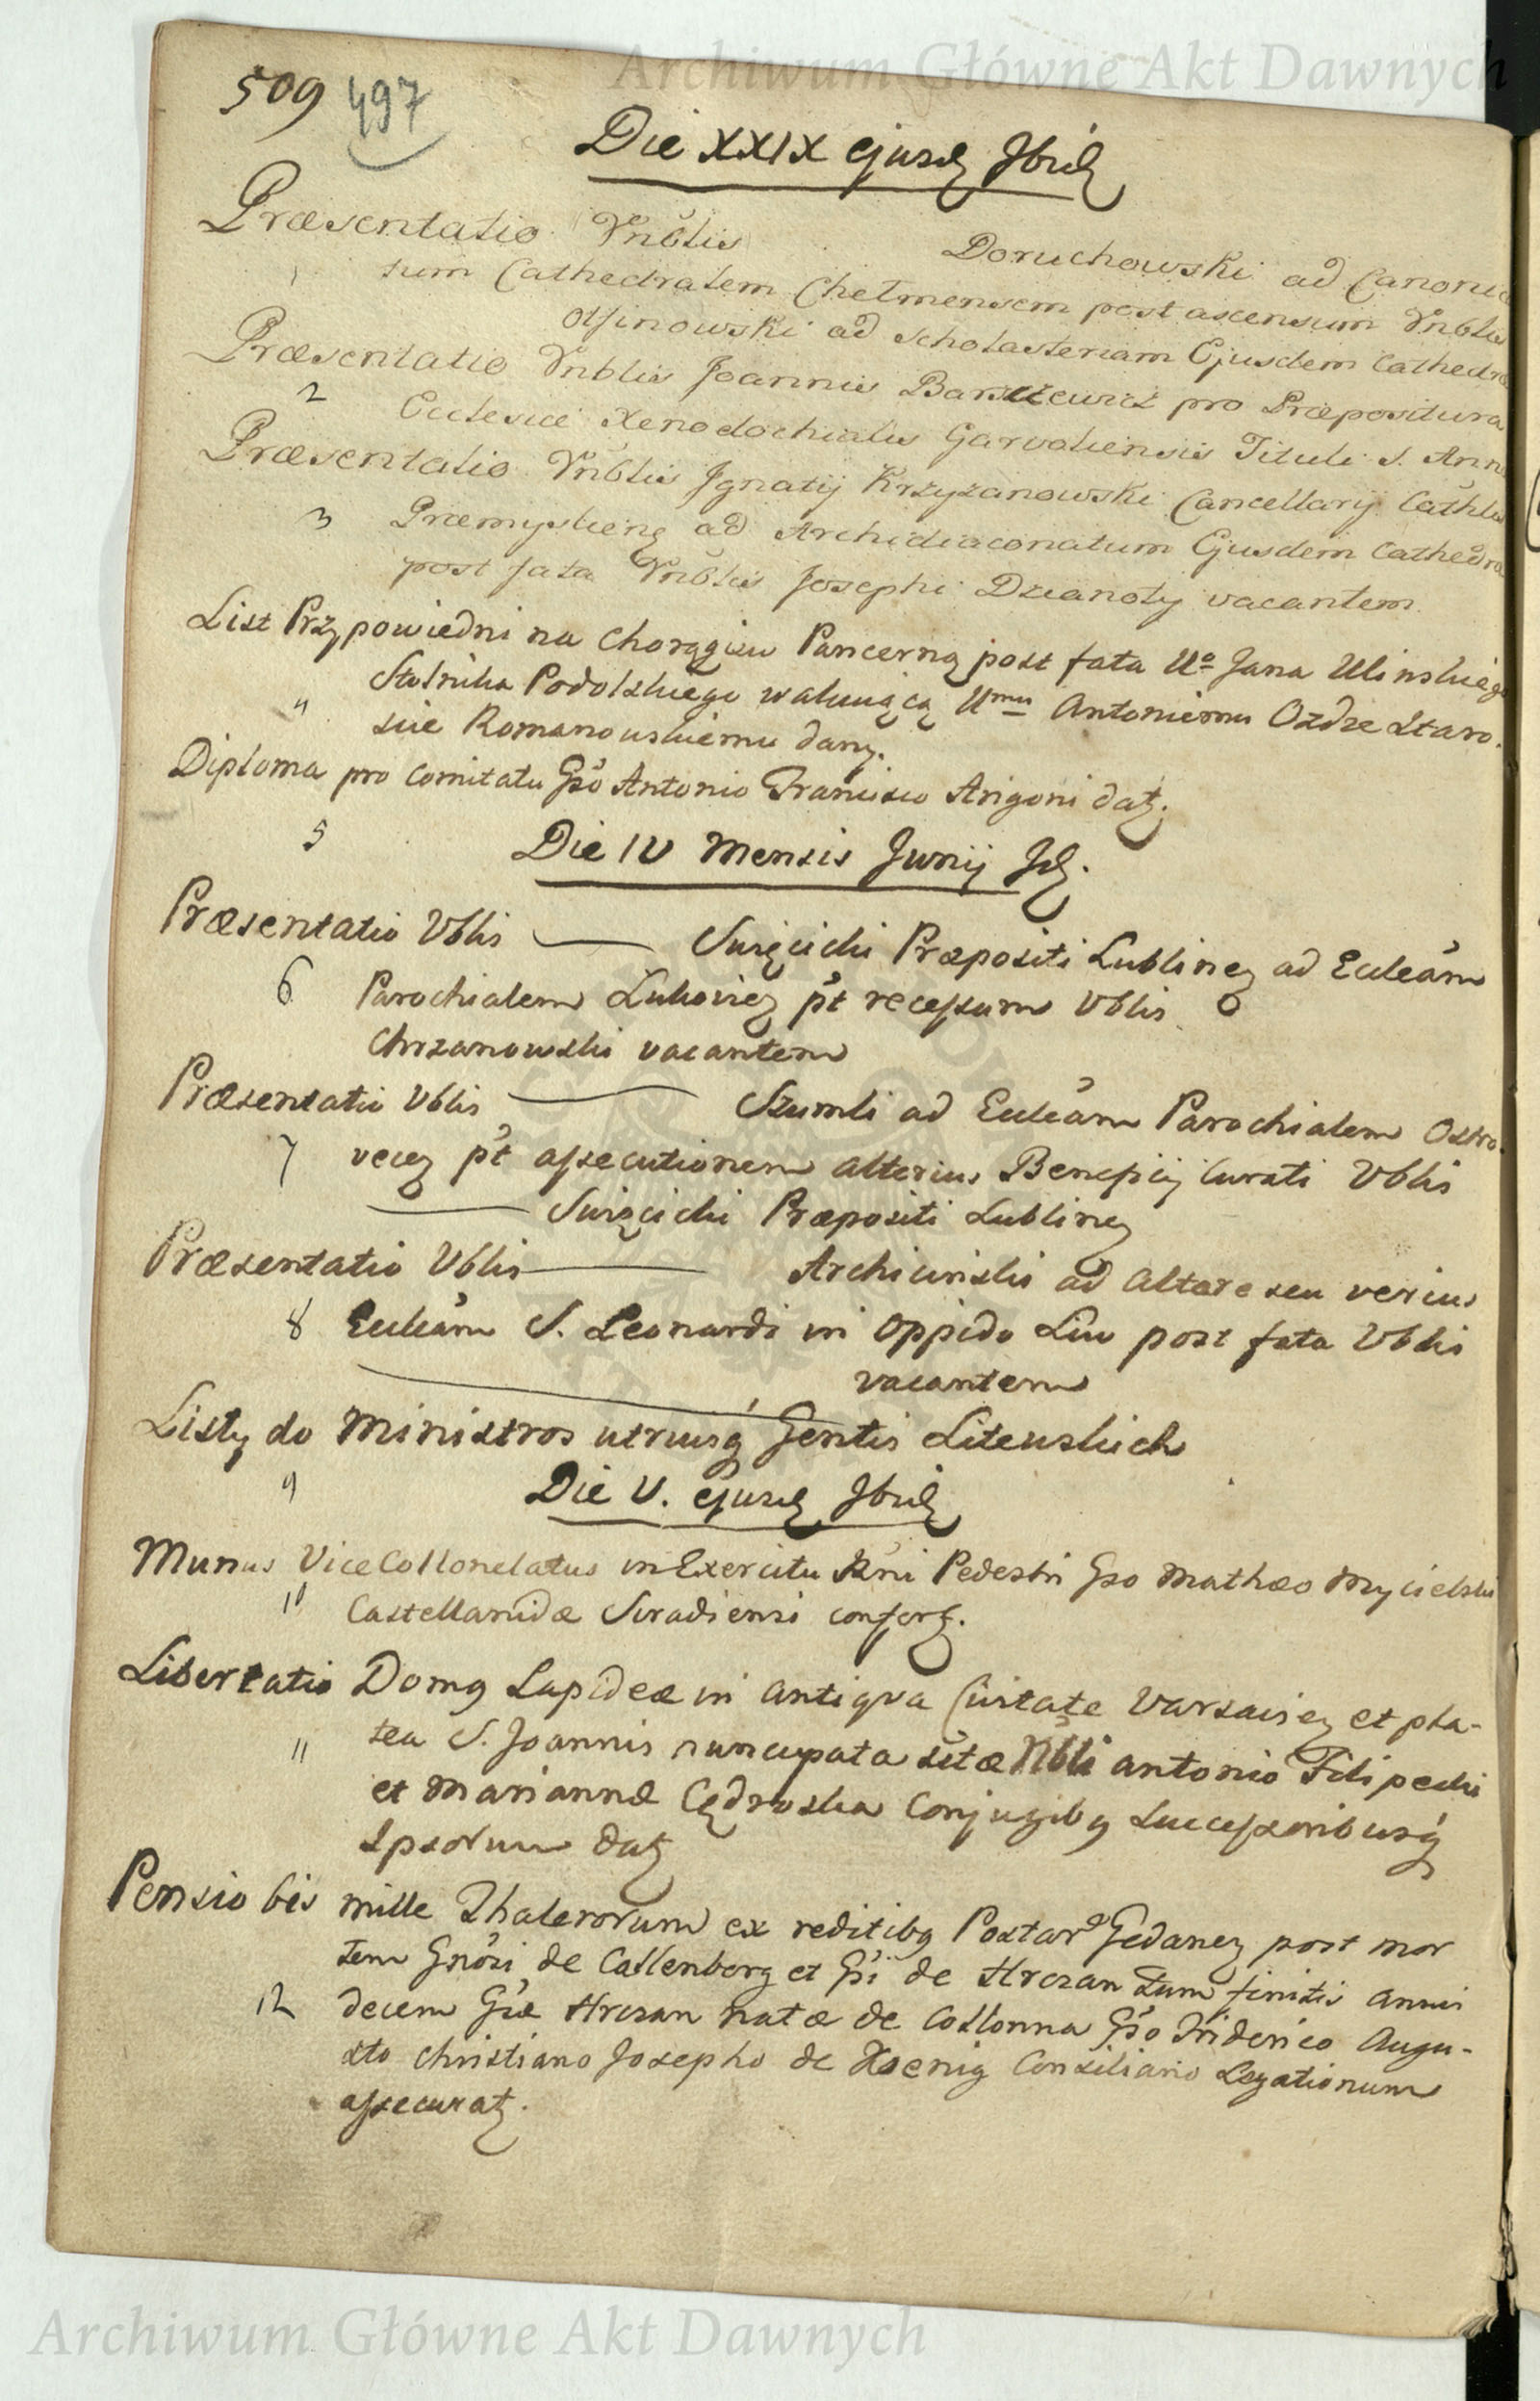 Archiwum Główne Akt Dawnych
509 497
Die XXIX ejusd Ibid
Præsentatio Vnblis Doruchowski ad Canonica
1 tum Cathedralem Chełmensem post ascensum Vnblis
Ossinowski ad Scholasteriam Ejusdem Cathedra
Præsentatio Vnblis Joannis Barszczewicz pro Præpositura
2 Ecclesiæ Xenodochialis Garvoliensis Tituli S. Annæ
Præsentatio Vnblis Ignatij Krzyżanowski Cancellarij Cathlis
3 Præmyslieng ad Archidiaconatum Ejusdem Cathedra
post fata Vnblis Josephi Dzianoty vacantem
List Przypowiedni na Chorągiew Pancerną post fata Uo Jana Ulinskiego
4 Stolnika Podolskiego wakuiącą Umu Antoniemu Ozdze Staro.
scie Romanowskiemu dany.
Diploma pro Comitatu Gso Antonio Francisco Arigoni dat.
5 Die IV Mensis Junij Id.
Præsentatio Vblis Swięcicki Præpositi Lublinen ad Eccleam
6 Parochialem Lukovien pt recessum Vblis
Chrzanowski vacantem
Præsentatio Vblis Szumli ad Eccleam Parochialem Ostro
7 vecen pt assecutionem alterius Beneficij Curati Vblis
Swięcicki Præpositi Lublinen
Præsentatio Vblis Archicinski ad Altare seu verius
8 Eccleam S. Leonardi in Oppido Liw post fata Vblis
vacantem
Listy do Ministros utriusq Gentis Litewskich
9 Die V. ejusd Ibid
Munus Vice Collonelatus in Exercitu Rni Pedestri Gso Mathæo Mycielski
10 Castellanidæ Siradiensi confert.
Libertatio Domq Lapideæ in antiqva Civitate Varsavien et pla-
11 tea S. Joannis nuncupata sitæ Nbli Antonio Filipecki
et Mariannæ Cędroska Conjugibq Successoribusq
Ipsorum dat
Pensio bis mille Thalerorum ex reditibq Postar Gedanen post mor
tem Gnosi de Callenberg et Gsi de Hrczan tum finitis annis
12 decem Gsæ Hrczan natæ de Collonna Gso Friderico Augu-
sto Christiano Josepho de Koenig Consiliario Legationum
assecurat.
Archiwum Główne Akt Dawnych